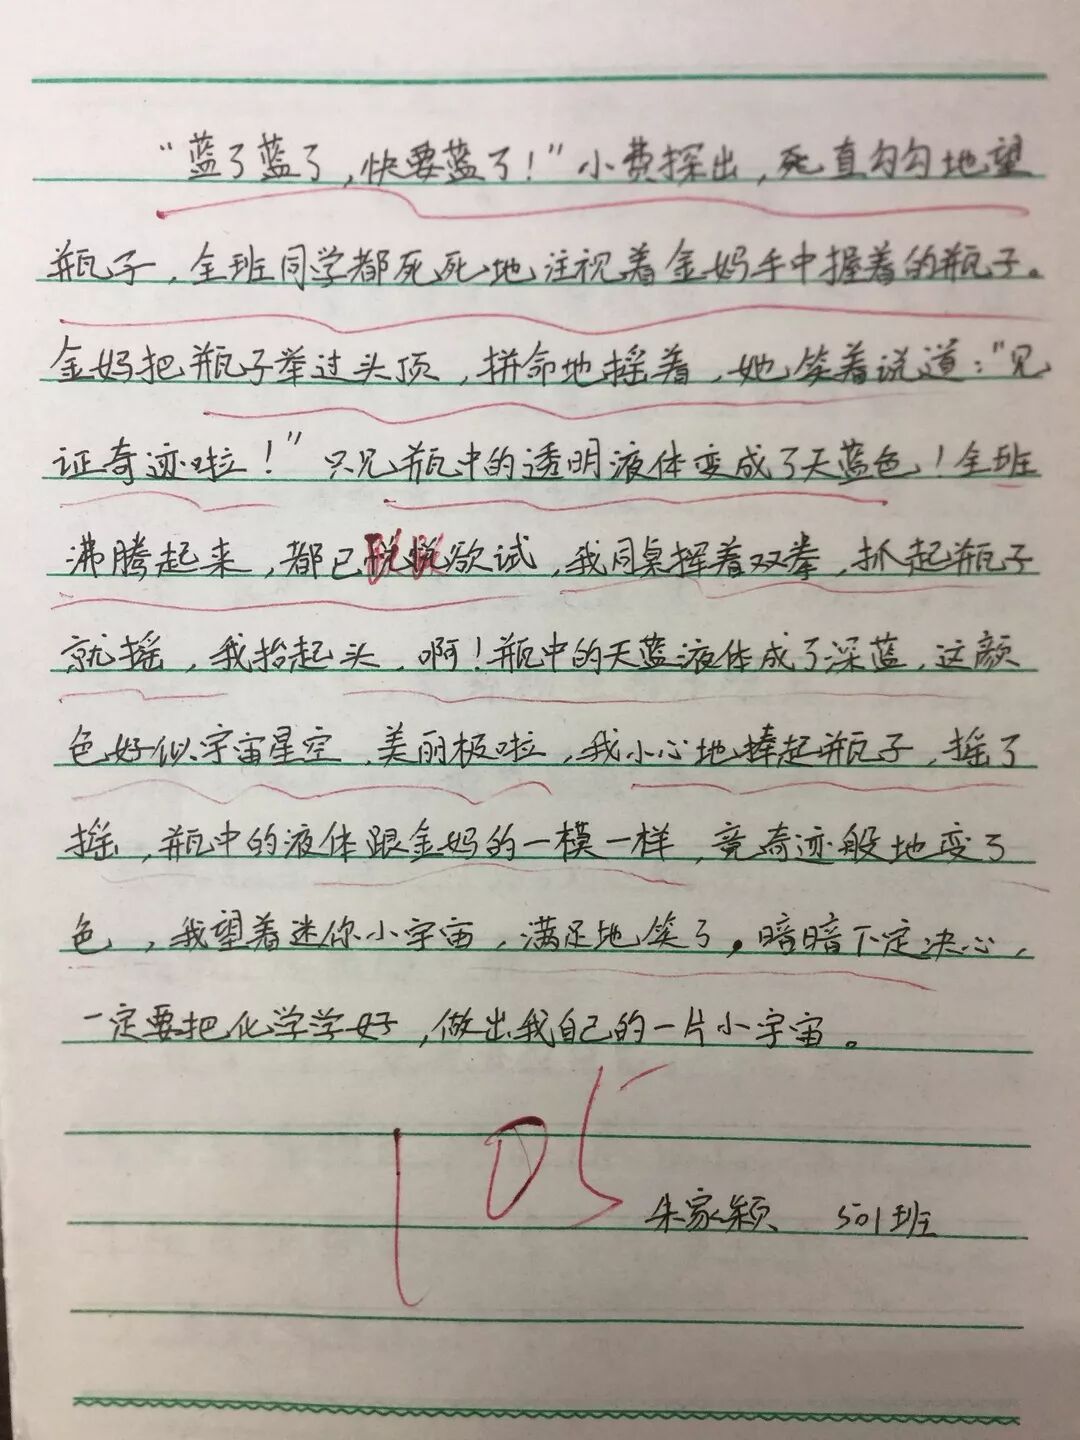 “蓝了蓝了，快要蓝了！”小费探出，死直勾勾地望
瓶子，全班同学都死死地注视着金妈手中握着的瓶子。
金妈把瓶子举过头顶，拼命地摇着，她笑着说道：“见
证奇迹啦！”只见瓶中的透明液体变成了天蓝色！全班
沸腾起来，都已跃跃欲试，我同桌挥着双拳，抓起瓶子
就摇，我抬起头，啊！瓶中的天蓝液体成了深蓝，这颜
色好似宇宙星空，美丽极啦，我小心地捧起瓶子，摇了
摇，瓶中的液体跟金妈的一模一样，竟奇迹般地变了
色，我望着迷你小宇宙，满足地笑了。暗暗下定决心，
一定要把化学学好，做出我自己的一片小宇宙。
105
朱家颖 501班